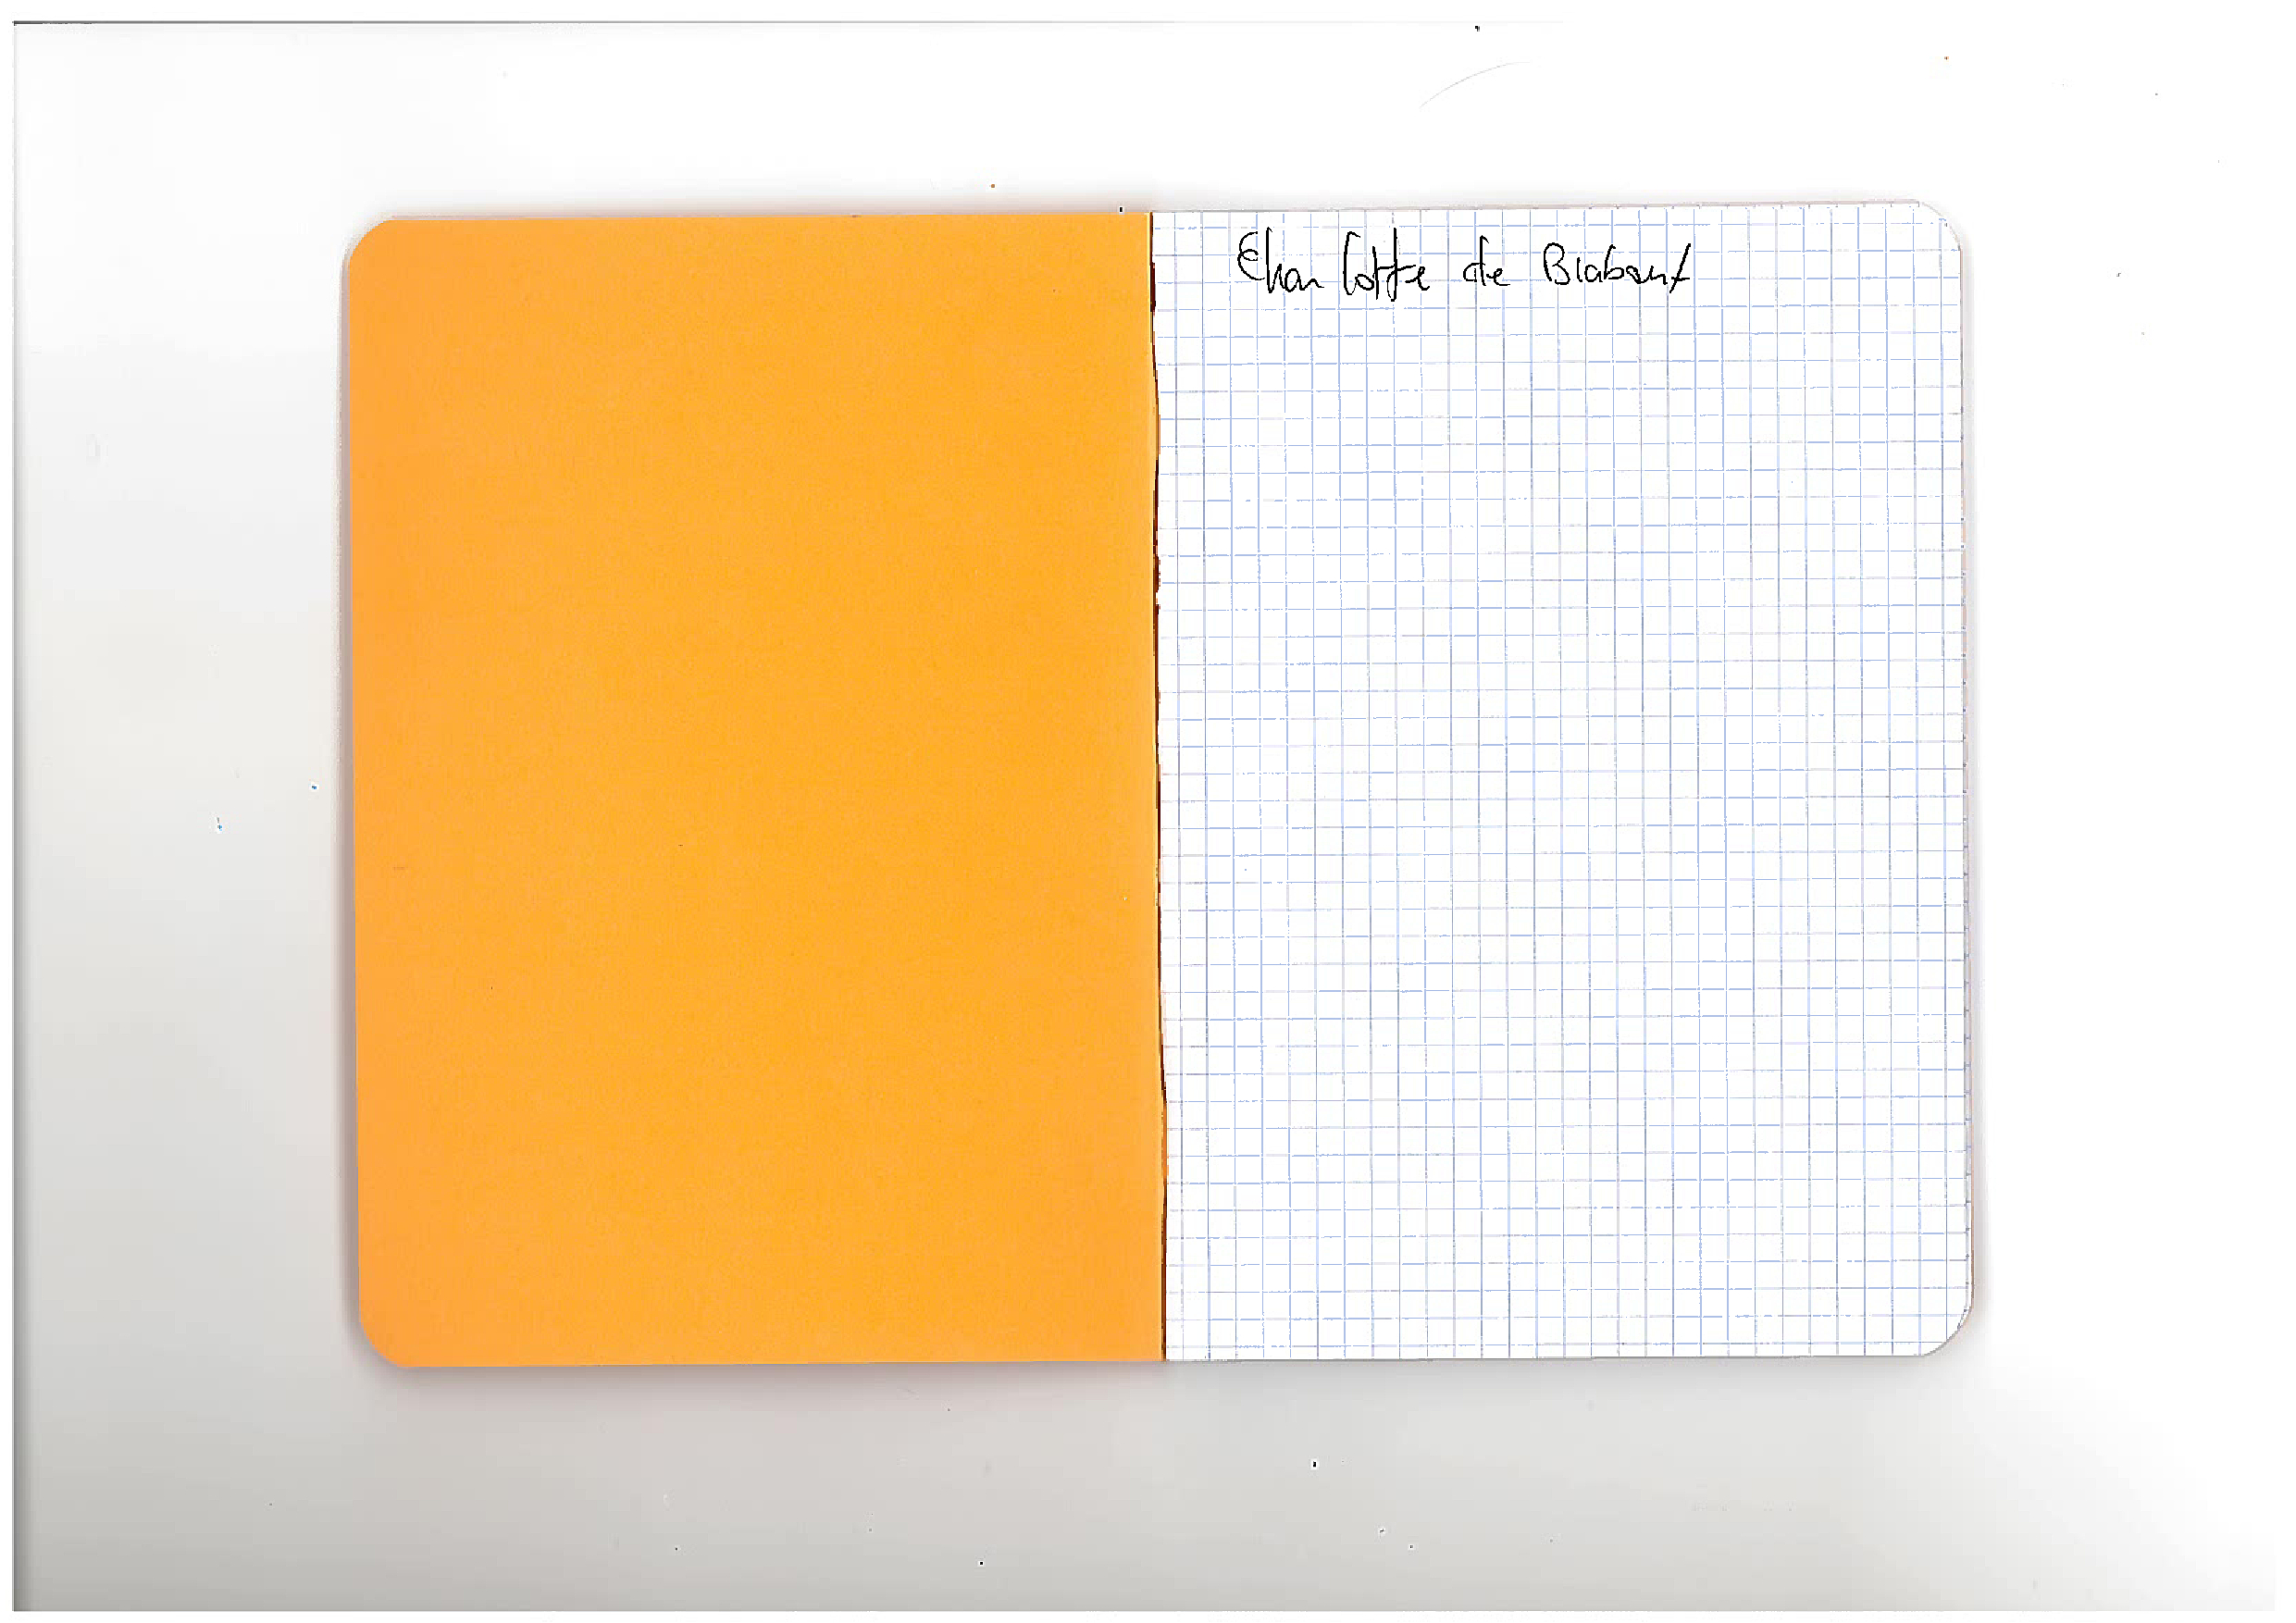 Charlotte de Brabant